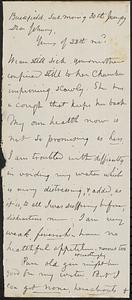 Brookfield, Wed. morng 30th
Dear Johnny,
Yours of 28th rec'd.
Mian still sick. Grandmother
confined still to her Chamber
improving slowly. She has
a cough that keeps her back
My own health now is
not so promising as hers
I am troubled with difficulty
in voiding my water which
is very distressing, & added as
it is to all I was suffering before
disheartens me. I am very
weak feverish. have no
healthful appetite,
Poor old gen might
join for my
I get none